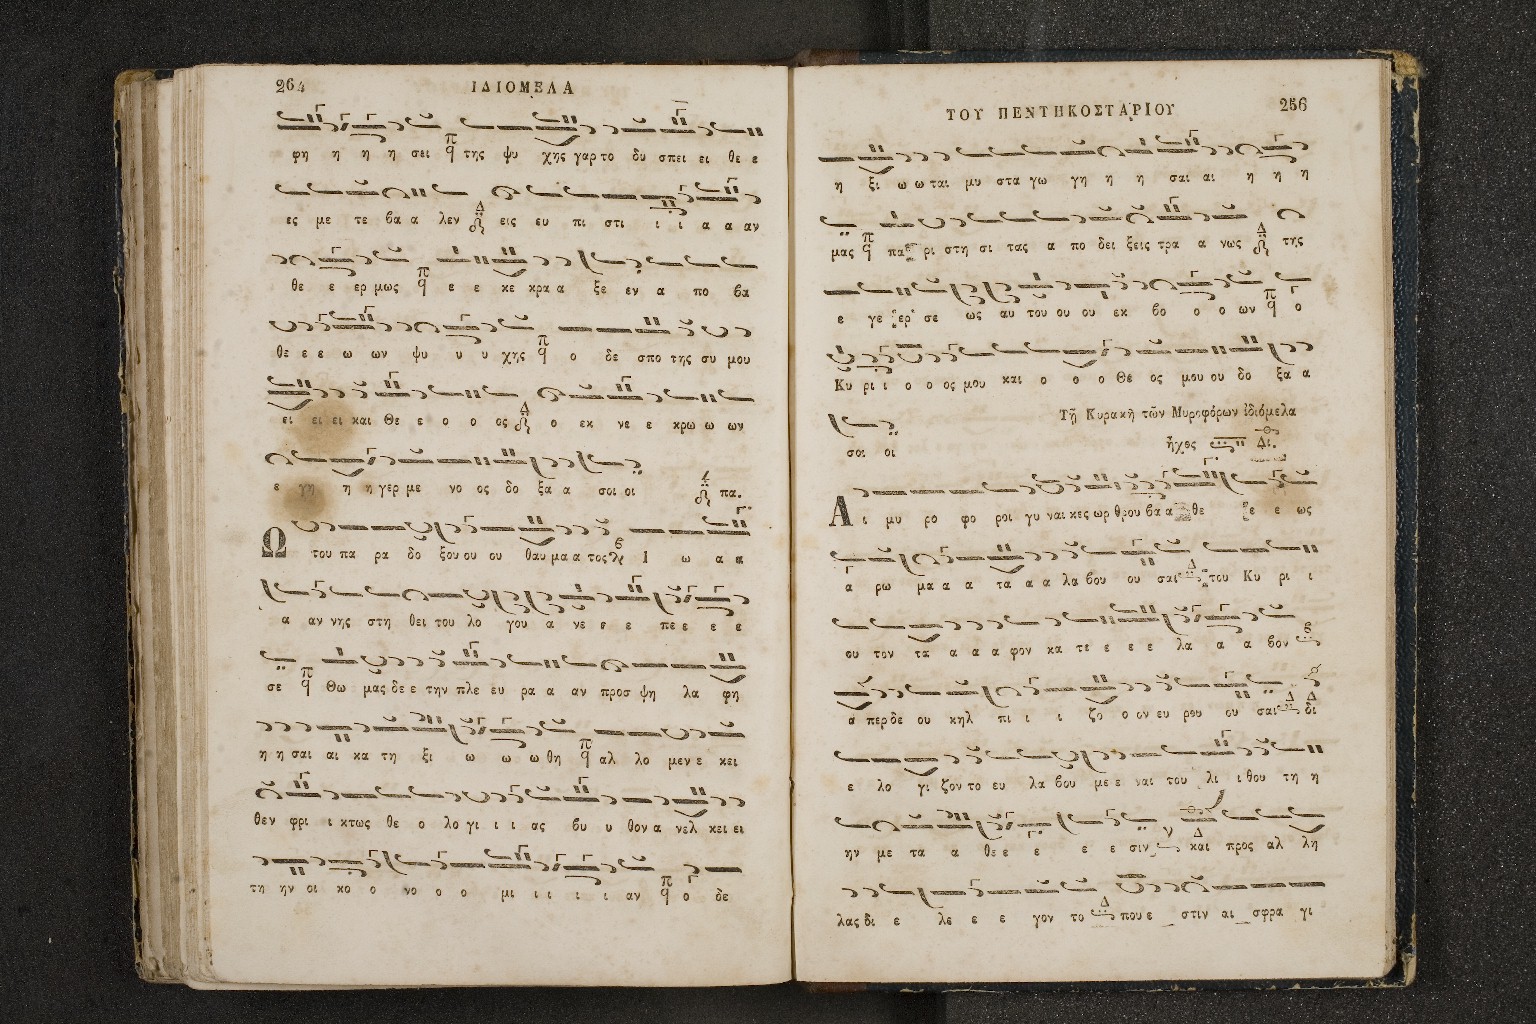 264 ΙΔΙΟΜΕΛΑ
φη η η η σει της ψυ χης γαρ το δυ σπει ει θε ε
ες με τε βα α λεν εις ευ πι στι ι ι α α αν
θε ε ερ μως ε ε κε κρα α ξε εν α πο βα
θε ε ε ω ων ψυ υ υ χης ο δε σπο της συ μου
ει ει ει και Θε ε ο ο ος ο εκ νε ε κρω ω ων
ε γη η η γερ με νο ος δο ξα α σοι οι πα.
Ω του πα ρα δο ξου ου ου θαυ μα α τος Ι ω α α
α αν νης στη θει του λο γου α νε ε ε πε ε ε ε
σε Θω μας δε ε την πλε ευ ρα α αν προσ ψη λα φη
η η σαι αι κα τη ξι ω ω ω θη αλ λο μεν ε κει
θεν φρι ι κτως θε ο λο γι ι ι ας βυ υ θον α νελ κει ει
τη ην οι κο ο νο ο ο μι ι ι ι ι αν ο δε
ΤΟΥ ΠΕΝΤΗΚΟΣΤΑΡΙΟΥ 256
η ξι ω ω ται μυ στα γω γη η η σαι αι η η η
μας πα ρι στη σι τας α πο δει ξεις τρα α νως της
ε γε ερ σε ως αυ του ου ου εκ βο ο ο ων ο
Κυ ρι ι ο ο ος μου και ο ο ο Θε ος μου ου δο ξα α
Τῇ Κυρακῇ τῶν Μυροφόρων ἰδιόμελα
σοι οι ἦχος Δι.
Α ι μυ ρο φο ροι γυ ναι κες ωρ θρου βα α θε ε ε ως
α ρω μα α α τα α α λα βου ου σαι του Κυ ρι ι
ου τον τα α α α φον κα τε ε ε ε λα α α βον
α περ δε ου κηλ πι ι ι ζο ο ον ευ ρου ου σαι δι
ε λο γι ζον το ευ λα βου με ε ναι του λι ι θου τη η
ην με τα α θε ε ε ε ε σιν και προς αλ λη
λας δι ε λε ε ε γον το που ε στιν αι σφρα γι